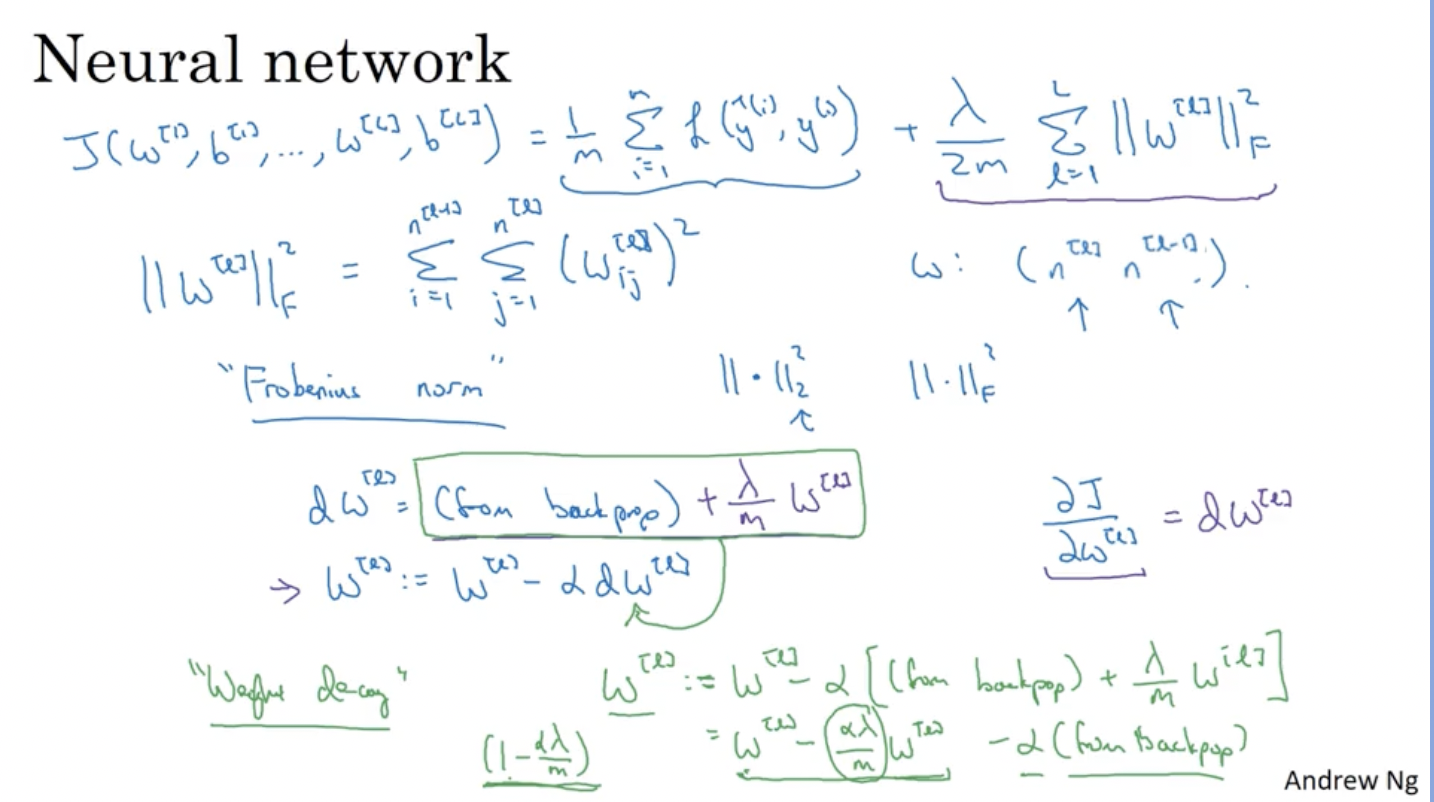 Neural network
J(w^[1], b^[1], ..., w^[L], b^[L]) = 1/m Σ_{i=1}^{m} ℒ(ŷ^(i), y^(i)) + λ/2m Σ_{l=1}^{L} ||w^[l]||²_F
||w^[l]||²_F = Σ_{i=1}^{n^[l-1]} Σ_{j=1}^{n^[l]} (w_ij^[l])² w: (n^[l] n^[l-1]).
↑ ↑
"Frobenius norm" ||·||²_2 ||·||²_F
↑
dw^[l] = (from backprop) + λ/m w^[l] ∂J/∂w^[l] = dw^[l]
→ w^[l] := w^[l] - α dw^[l]
"Weight decay" w^[l] := w^[l] - α[(from backprop) + λ/m w^[l]]
(1 - αλ/m) = w^[l] - αλ/m w^[l] - α(from backprop)
Andrew Ng